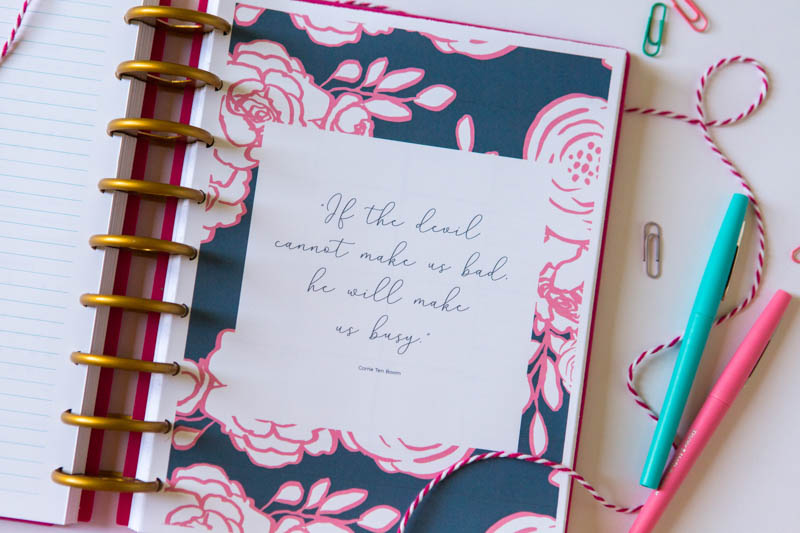 "If the devil
cannot make us bad,
he will make
us busy."
Corrie Ten Boom